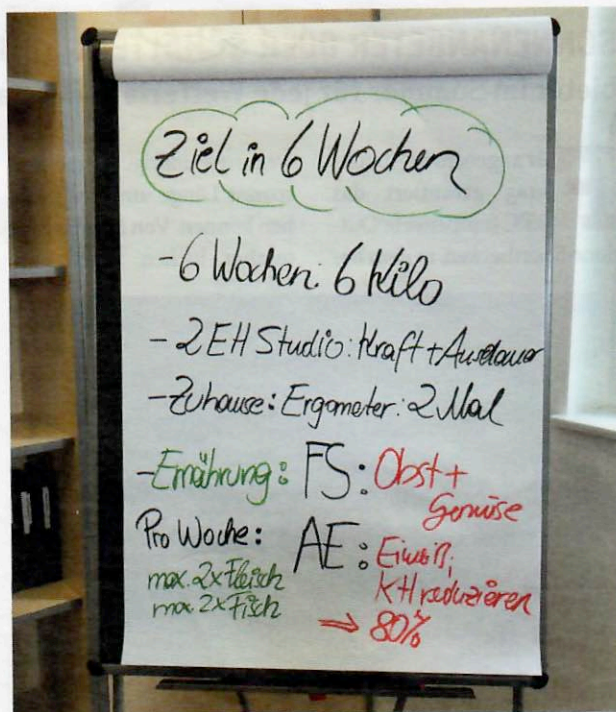 Ziel in 6 Wochen
- 6 Wochen: 6 Kilo
- 2 EH Studio: Kraft + Ausdauer
- Zuhause: Ergometer: 2 Mal
- Ernährung: FS: Obst +
Gemüse
Pro Woche:
max. 2x Fleisch
max. 2x Fisch
AE: Eiweiß,
KH reduzieren
⇒ 80%